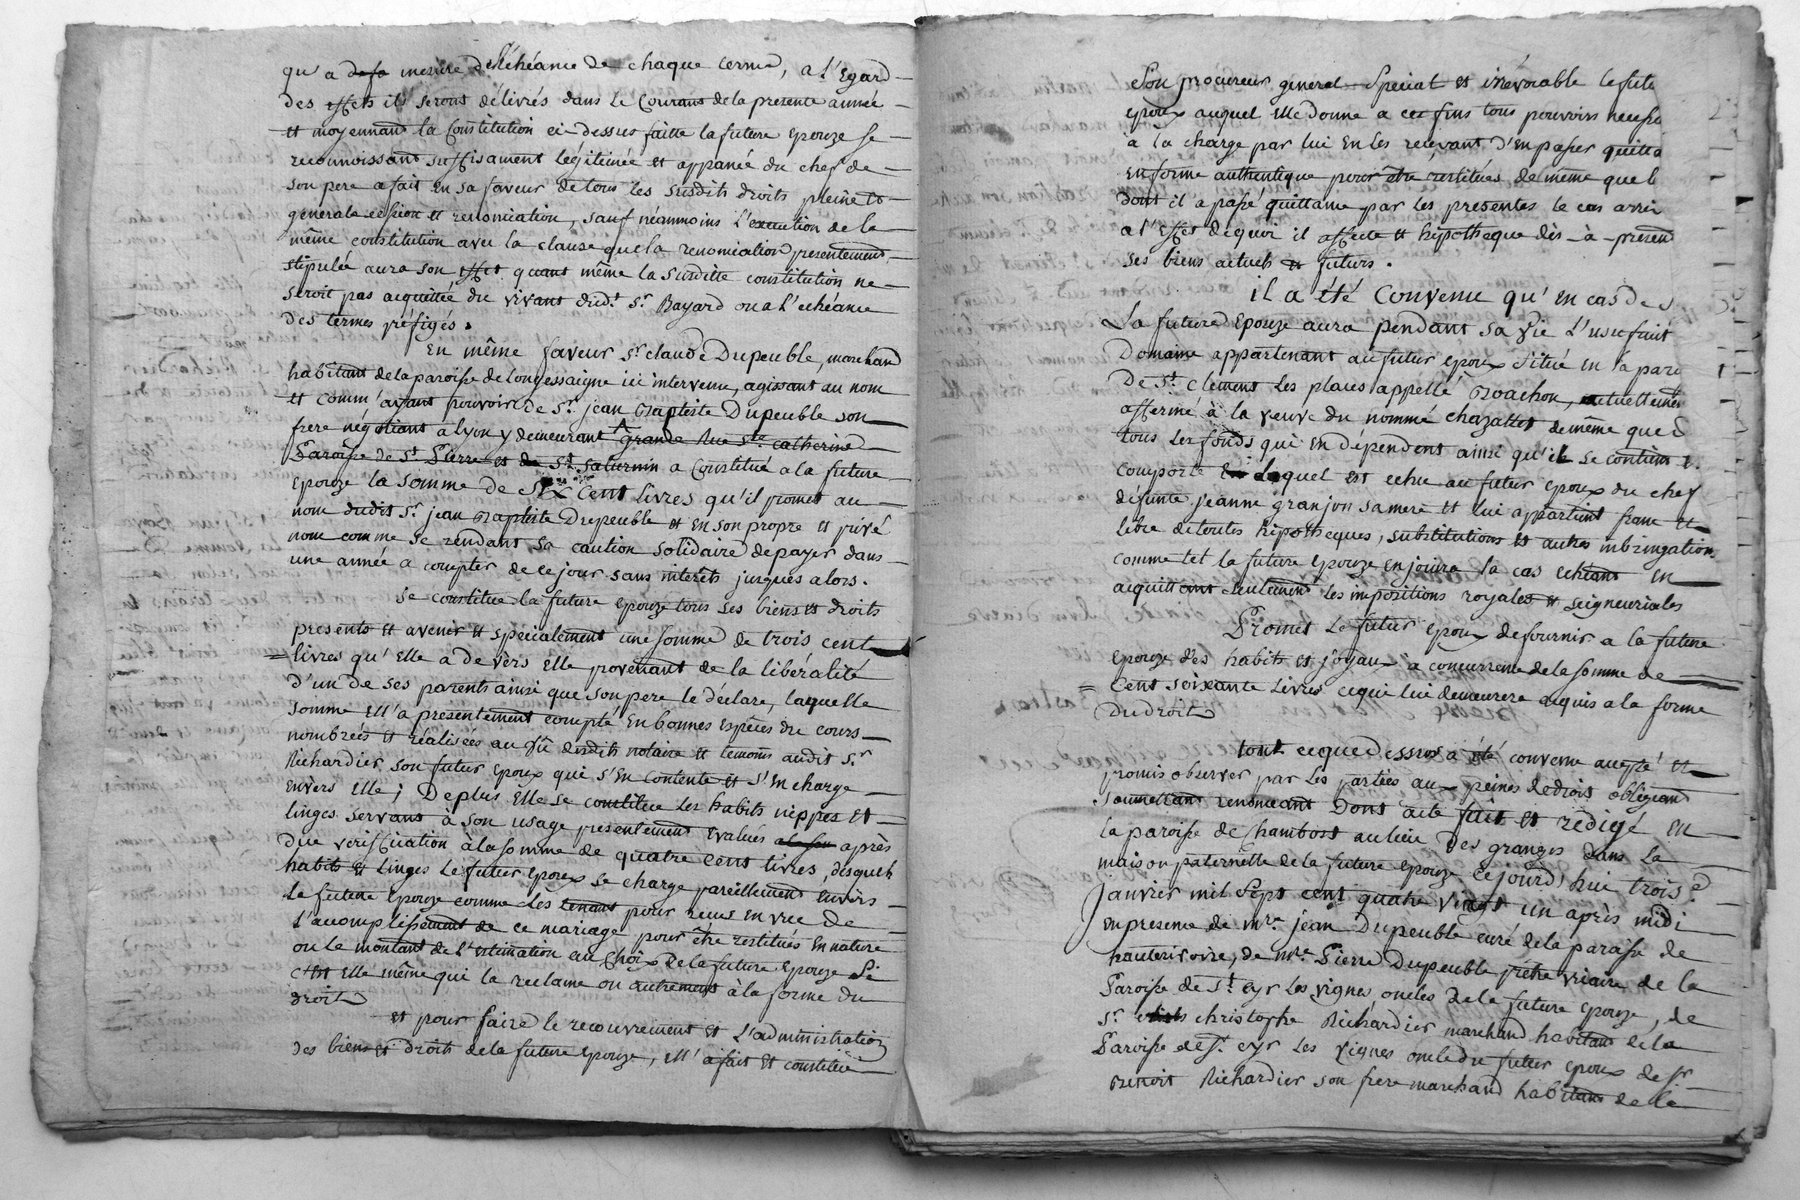 qu'a mesure de l'échéance de chaque terme, a l'Egard
des effets ils seront délivrés dans le Courant de la presente année
et moyennant la Constitution ci-dessus faitte la future epouze se
reconnoissant suffisament légitimée et appanée du chef de
son pere a fait en sa faveur de tous les susdits droits pleine et
generale cession et renonciation, sauf néanmoins l'execution de la
même constitution avec la clause que la renonciation presentement
stipulée aura son effet quant même la susditte constitution ne
seroit pas acquittée du vivant dudt. sr. Bayard ou a l'echéance
des termes préfigés.
En même faveur sr. claude Dupeuble, marchand
habitant de la paroisse de Longessaigne ici intervenu, agissant au nom
et comm'ayant pouvoir de sr. jean Baptiste Dupeuble son
frere négotiant a lyon y demeurant grande Rue ste. catherine
Paroisse de st. Pierre et st. saturnin a Constitué a la future
epouze la somme de six cent livres qu'il promet au
nom dudit sr. jean Baptiste Dupeuble et en son propre et privé
nom comme se rendant sa caution solidaire de payer dans
une année a compter de ce jour sans interêts jusques alors.
se constitue la future epouze tous ses biens et droits
presents et avenir et specialement une somme de trois cent
livres qu'elle a devers elle provenant de la libéralité
d'un de ses parents ainsi que son pere le déclare, laquelle
somme ell'a presentement compté en bonnes espèces du cours
nombrées et réalisées au vû desdits notaire et temoins audit sr.
Richardier son futur epoux qui s'en contente et s'en charge
envers elle; Deplus elle se constitue les habits nippes et
linges servans à son usage presentement evalués après
due verification à la somme de quatre cent livres, desquels
habits et linges le futur epoux se charge pareillement envers
la future epouze comme les tenant pour reçus en vue de
l'accomplissement de ce mariage pour être restitués en nature
ou le montant de l'estimation au choix de la future epouze si
c'est elle même qui la reclame ou autrement à la forme du
droit
et pour faire le recouvrement et l'administration
des biens et droits de la future epouze, ell'a fait et constitué
son procureur general special et irrévocable le futu
epoux auquel elle donne a ces fins tous pouvoirs necess
à la charge par lui en les recevant d'en passer quitta
en forme authentique pour être restitués de même que l
dont il a passé quittance par les presentes le cas arriv
a l'effet de quoi il affecte et hipotheque dès-à-present
ses biens actuels et futurs.
il a été Convenu qu'en cas de s
La future epouze aura pendant sa vie l'usufruit
Domaine appartenant au futur epoux situé en la paro
De st. Clement les places appellé Boachon, actuellement
affermé à la veuve du nommé chazallet de même que d
tous les fonds qui en dépendent ainsi qu'il se contient &
comporte lequel est echu au futur epoux du chef
défunte jeanne granjon sa mere et lui appartient franc et
libre de toutes hipotheques, substitutions et autres
comme tel la future epouze en jouira la cas echéant en
acquittant seulement les impositions royales et seigneuriales
Promet le futur epoux de fournir a la future
epouze des habits et joyaux a concurrence de la somme de
cent soixante livres ce qui lui demeurera acquis a la forme
Du droit
tout ce que dessus a été convenu accepté et
promis observer par les parties aux peines de droit obligeant
soumettant renonceant Dont acte fait et redigé en
la paroisse de Chambost au lieu Des granges dans la
maison paternelle de la future epouze Cejourd'hui trois
janvier mil sept cent quatre vingt un après midi
en presence de mre. jean Dupeuble curé de la paroisse de
hauterivoire, de mre. Pierre Dupeuble prêtre vicaire de la
Paroisse de st. cyr les vignes oncles de la future epouze, de
sr. christophe Richardier marchand habitant de la
Paroisse de st. cyr les vignes oncle du futur epoux de sr.
Benoit Richardier son frere marchand habitant de la